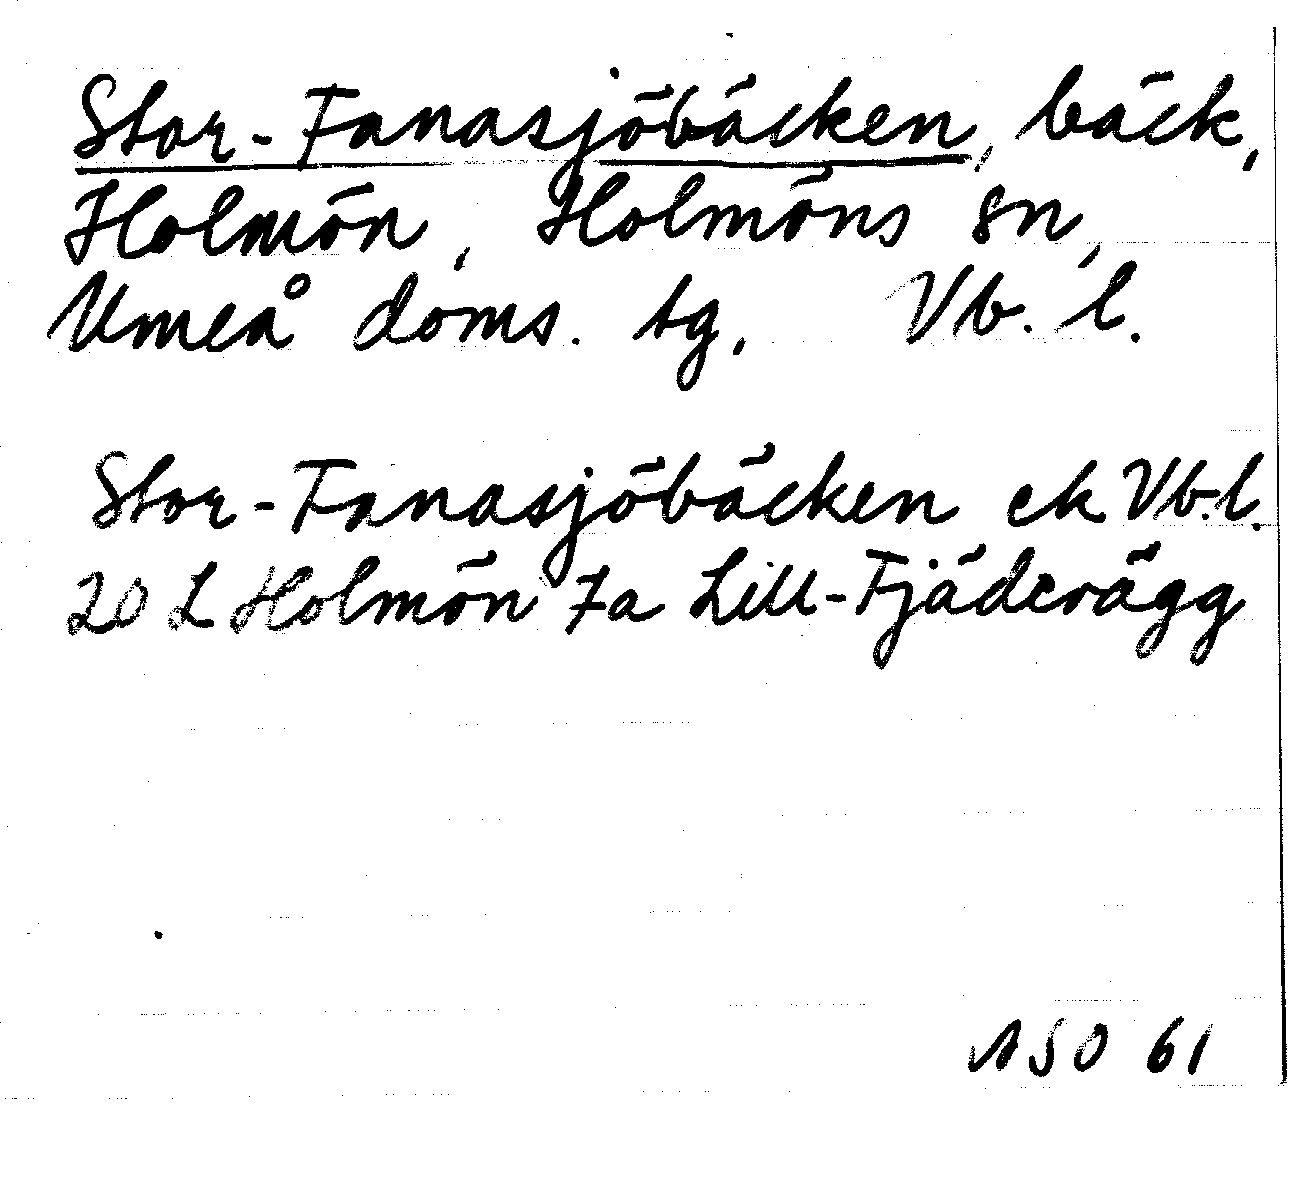 Stor-Fanasjöbäcken, bäck,
Holmön, Holmöns sn,
Umeå doms. tg, Vb. l.
Stor-Fanasjöbäcken ek Vb.l.
20 L Holmön 7a Lill-Fjäderägg
ASO 61